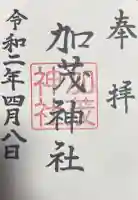 奉拝
加茂神社
加茂神社
令和二年四月八日